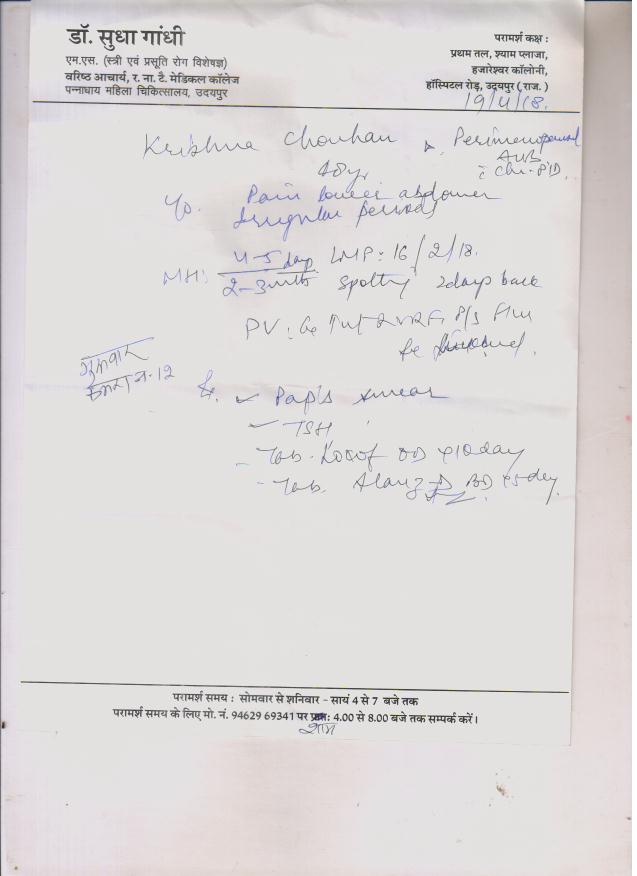 डॉ. सुधा गांधी
एम.एस. (स्त्री एवं प्रसूति रोग विशेषज्ञ)
वरिष्ठ आचार्य, र. ना. टै. मेडिकल कॉलेज
पन्नाधाय महिला चिकित्सालय, उदयपुर
परामर्श कक्ष :
प्रथम तल, श्याम प्लाजा,
हजारेश्वर कॉलोनी,
हॉस्पिटल रोड़, उदयपुर (राज.)
19/4/18.
Krishna Chouhan
Perimenopausal
AUB
c Chr. PID.
Pain lower abdomen
Irregular periods
MH: 4-5 days LMP: 16/2/18.
2-3 mths spotting 2 days back
PV:
Pap's smear
TSH
Tab. OD x 10 day
Tab. BD x 5 day.
परामर्श समय : सोमवार से शनिवार - सायं 4 से 7 बजे तक
परामर्श समय के लिए मो. नं. 94629 69341 पर प्रातः 4.00 से 8.00 बजे तक सम्पर्क करें।
शाम